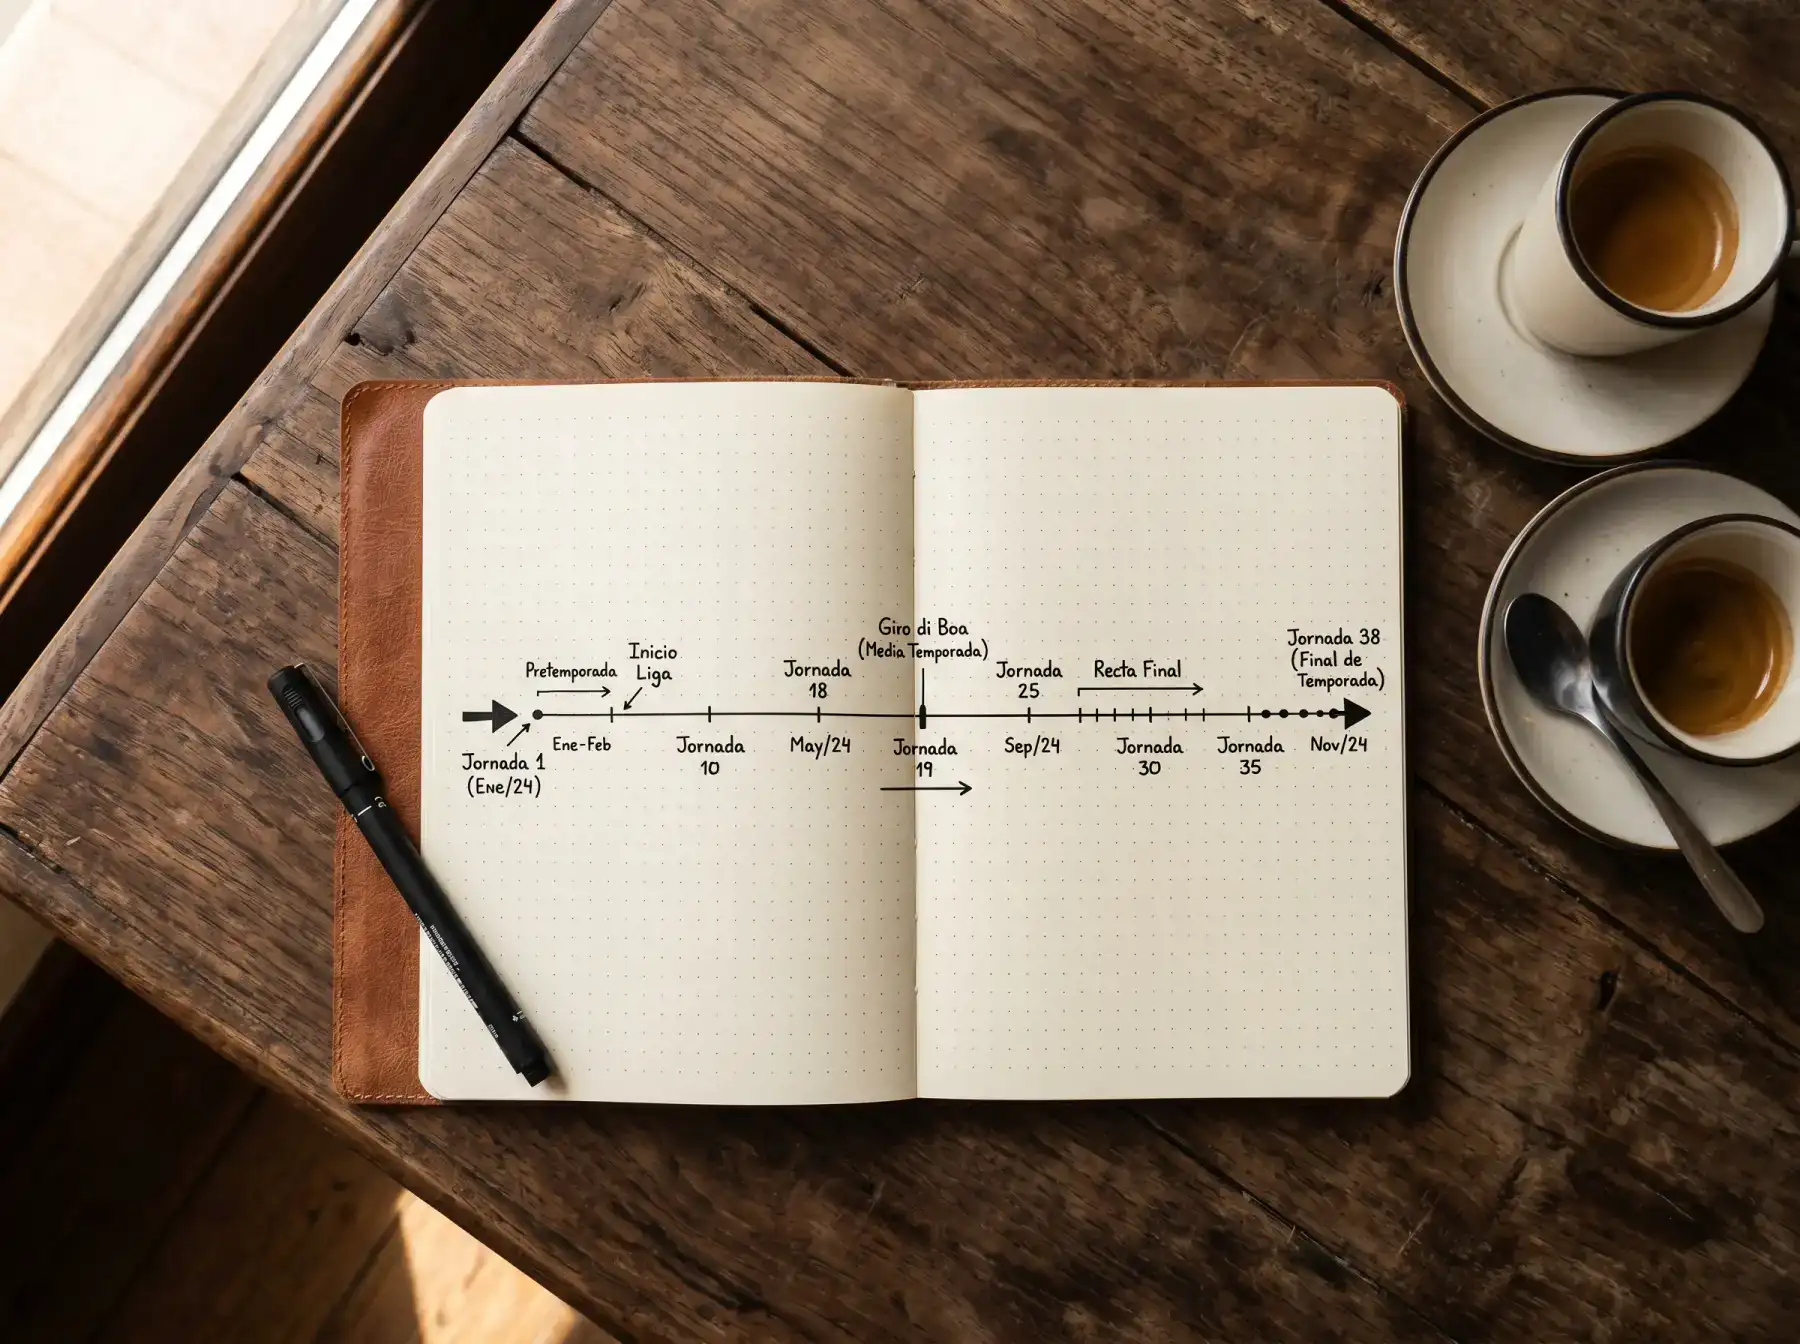 Giro di Boa
(Media Temporada)
Jornada 38
(Final de
Temporada)
Inicio
Liga
Pretemporada
Jornada
18
Jornada
25
Recta Final
Ene-Feb
Jornada
10
May/24
Jornada
19
Sep/24
Jornada
30
Jornada
35
Nov/24
Jornada 1
(Ene/24)